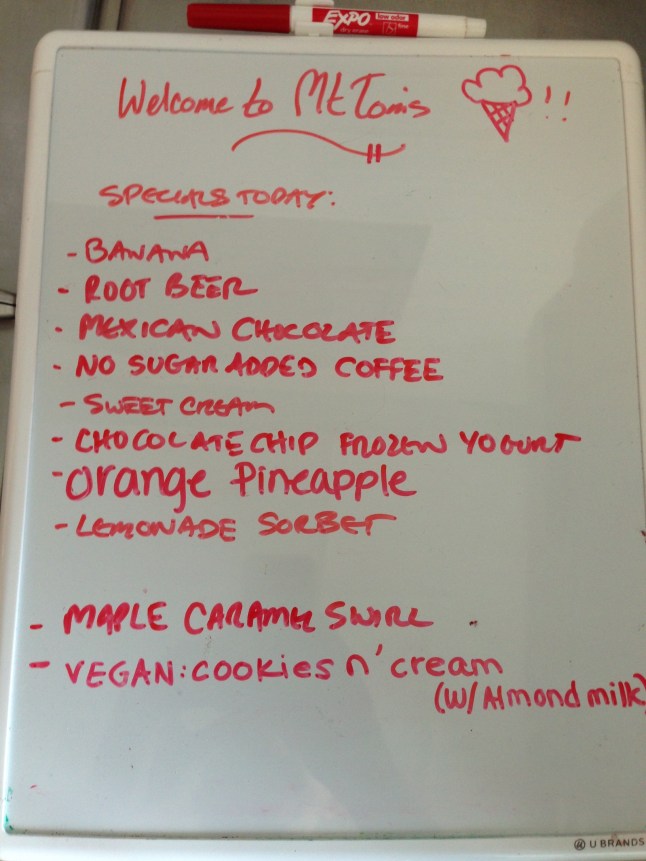 EXPO
low odor
dry erase
fine
Welcome to Mt Toms !!
SPECIALS TODAY:
- BANANA
- ROOT BEER
- MEXICAN CHOCOLATE
- NO SUGAR ADDED COFFEE
- SWEET CREAM
- CHOCOLATE CHIP FROZEN YOGURT
- orange Pineapple
- LEMONADE SORBET
- MAPLE CARAMEL SWIRL
- VEGAN: COOKies n' cream
(W/ Almond milk)
U BRANDS